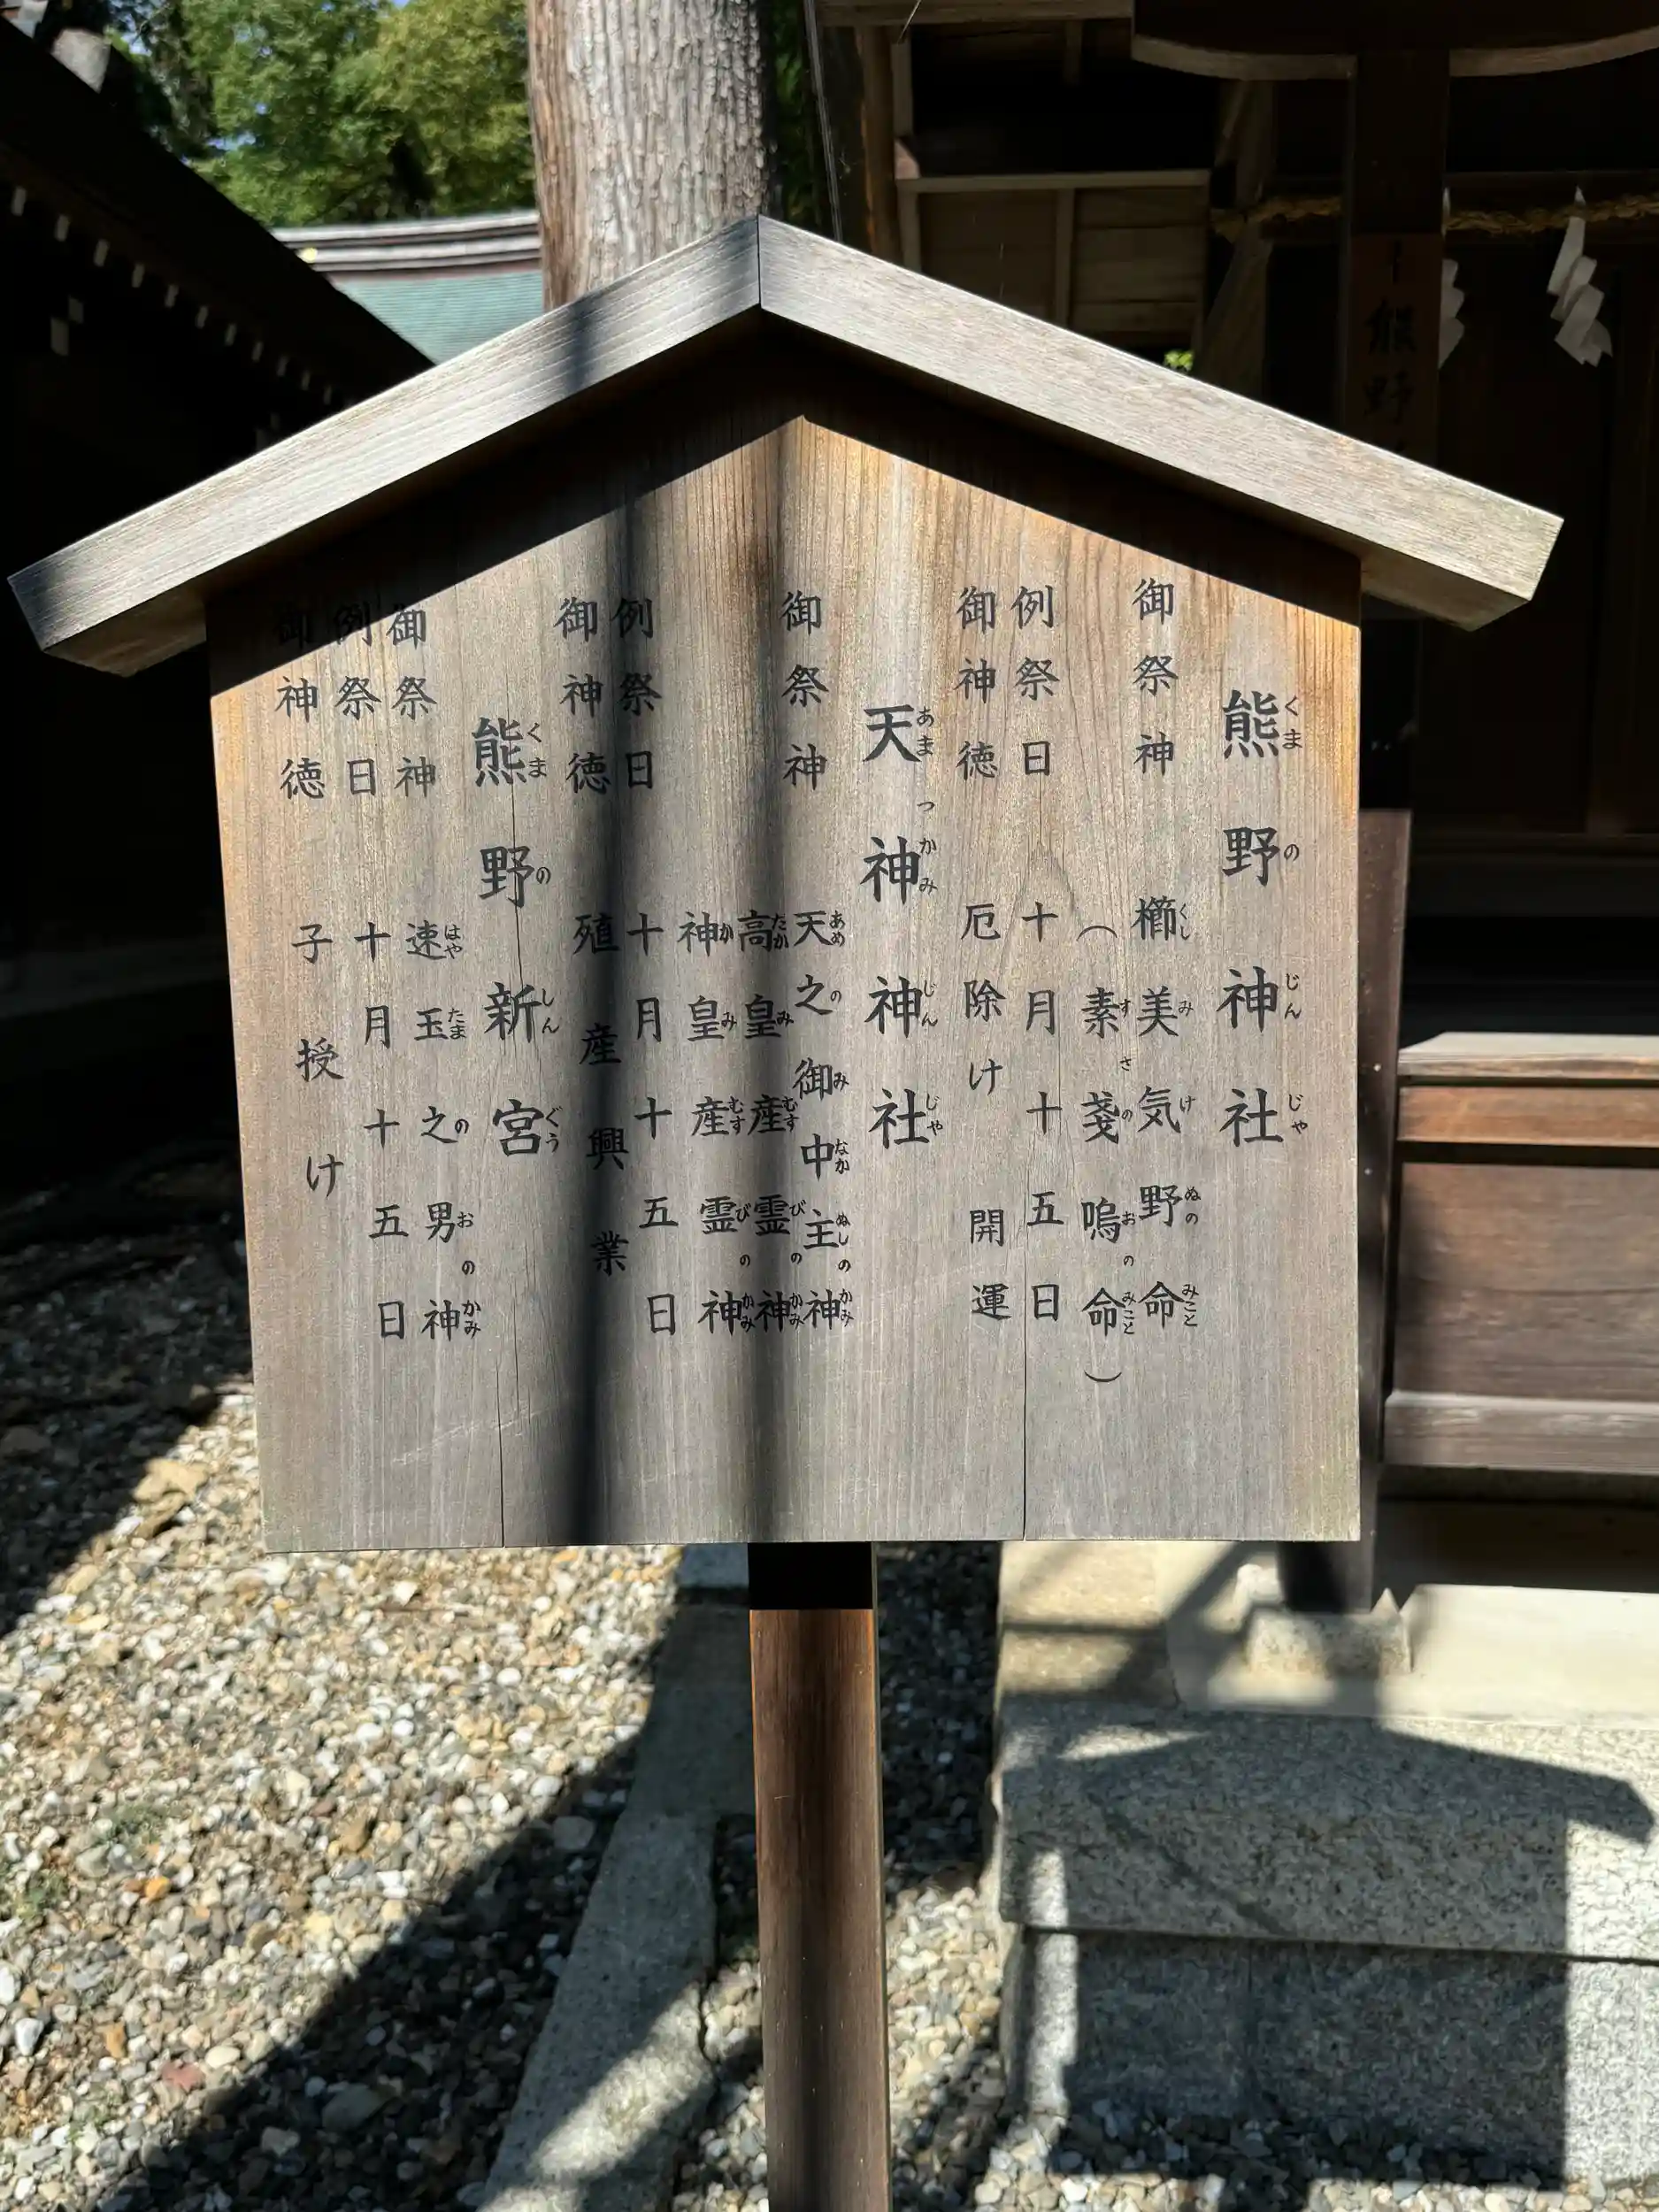 熊野神社
御祭神 櫛美気野命
（素戔嗚命）
例祭日 十月十五日
御神徳 厄除け 開運
天神神社
御祭神 天之御中主神
高皇産霊神
神皇産霊神
例祭日 十月十五日
御神徳 殖産興業
熊野新宮
御祭神 速玉之男神
例祭日 十月十五日
御神徳 子授け
熊野